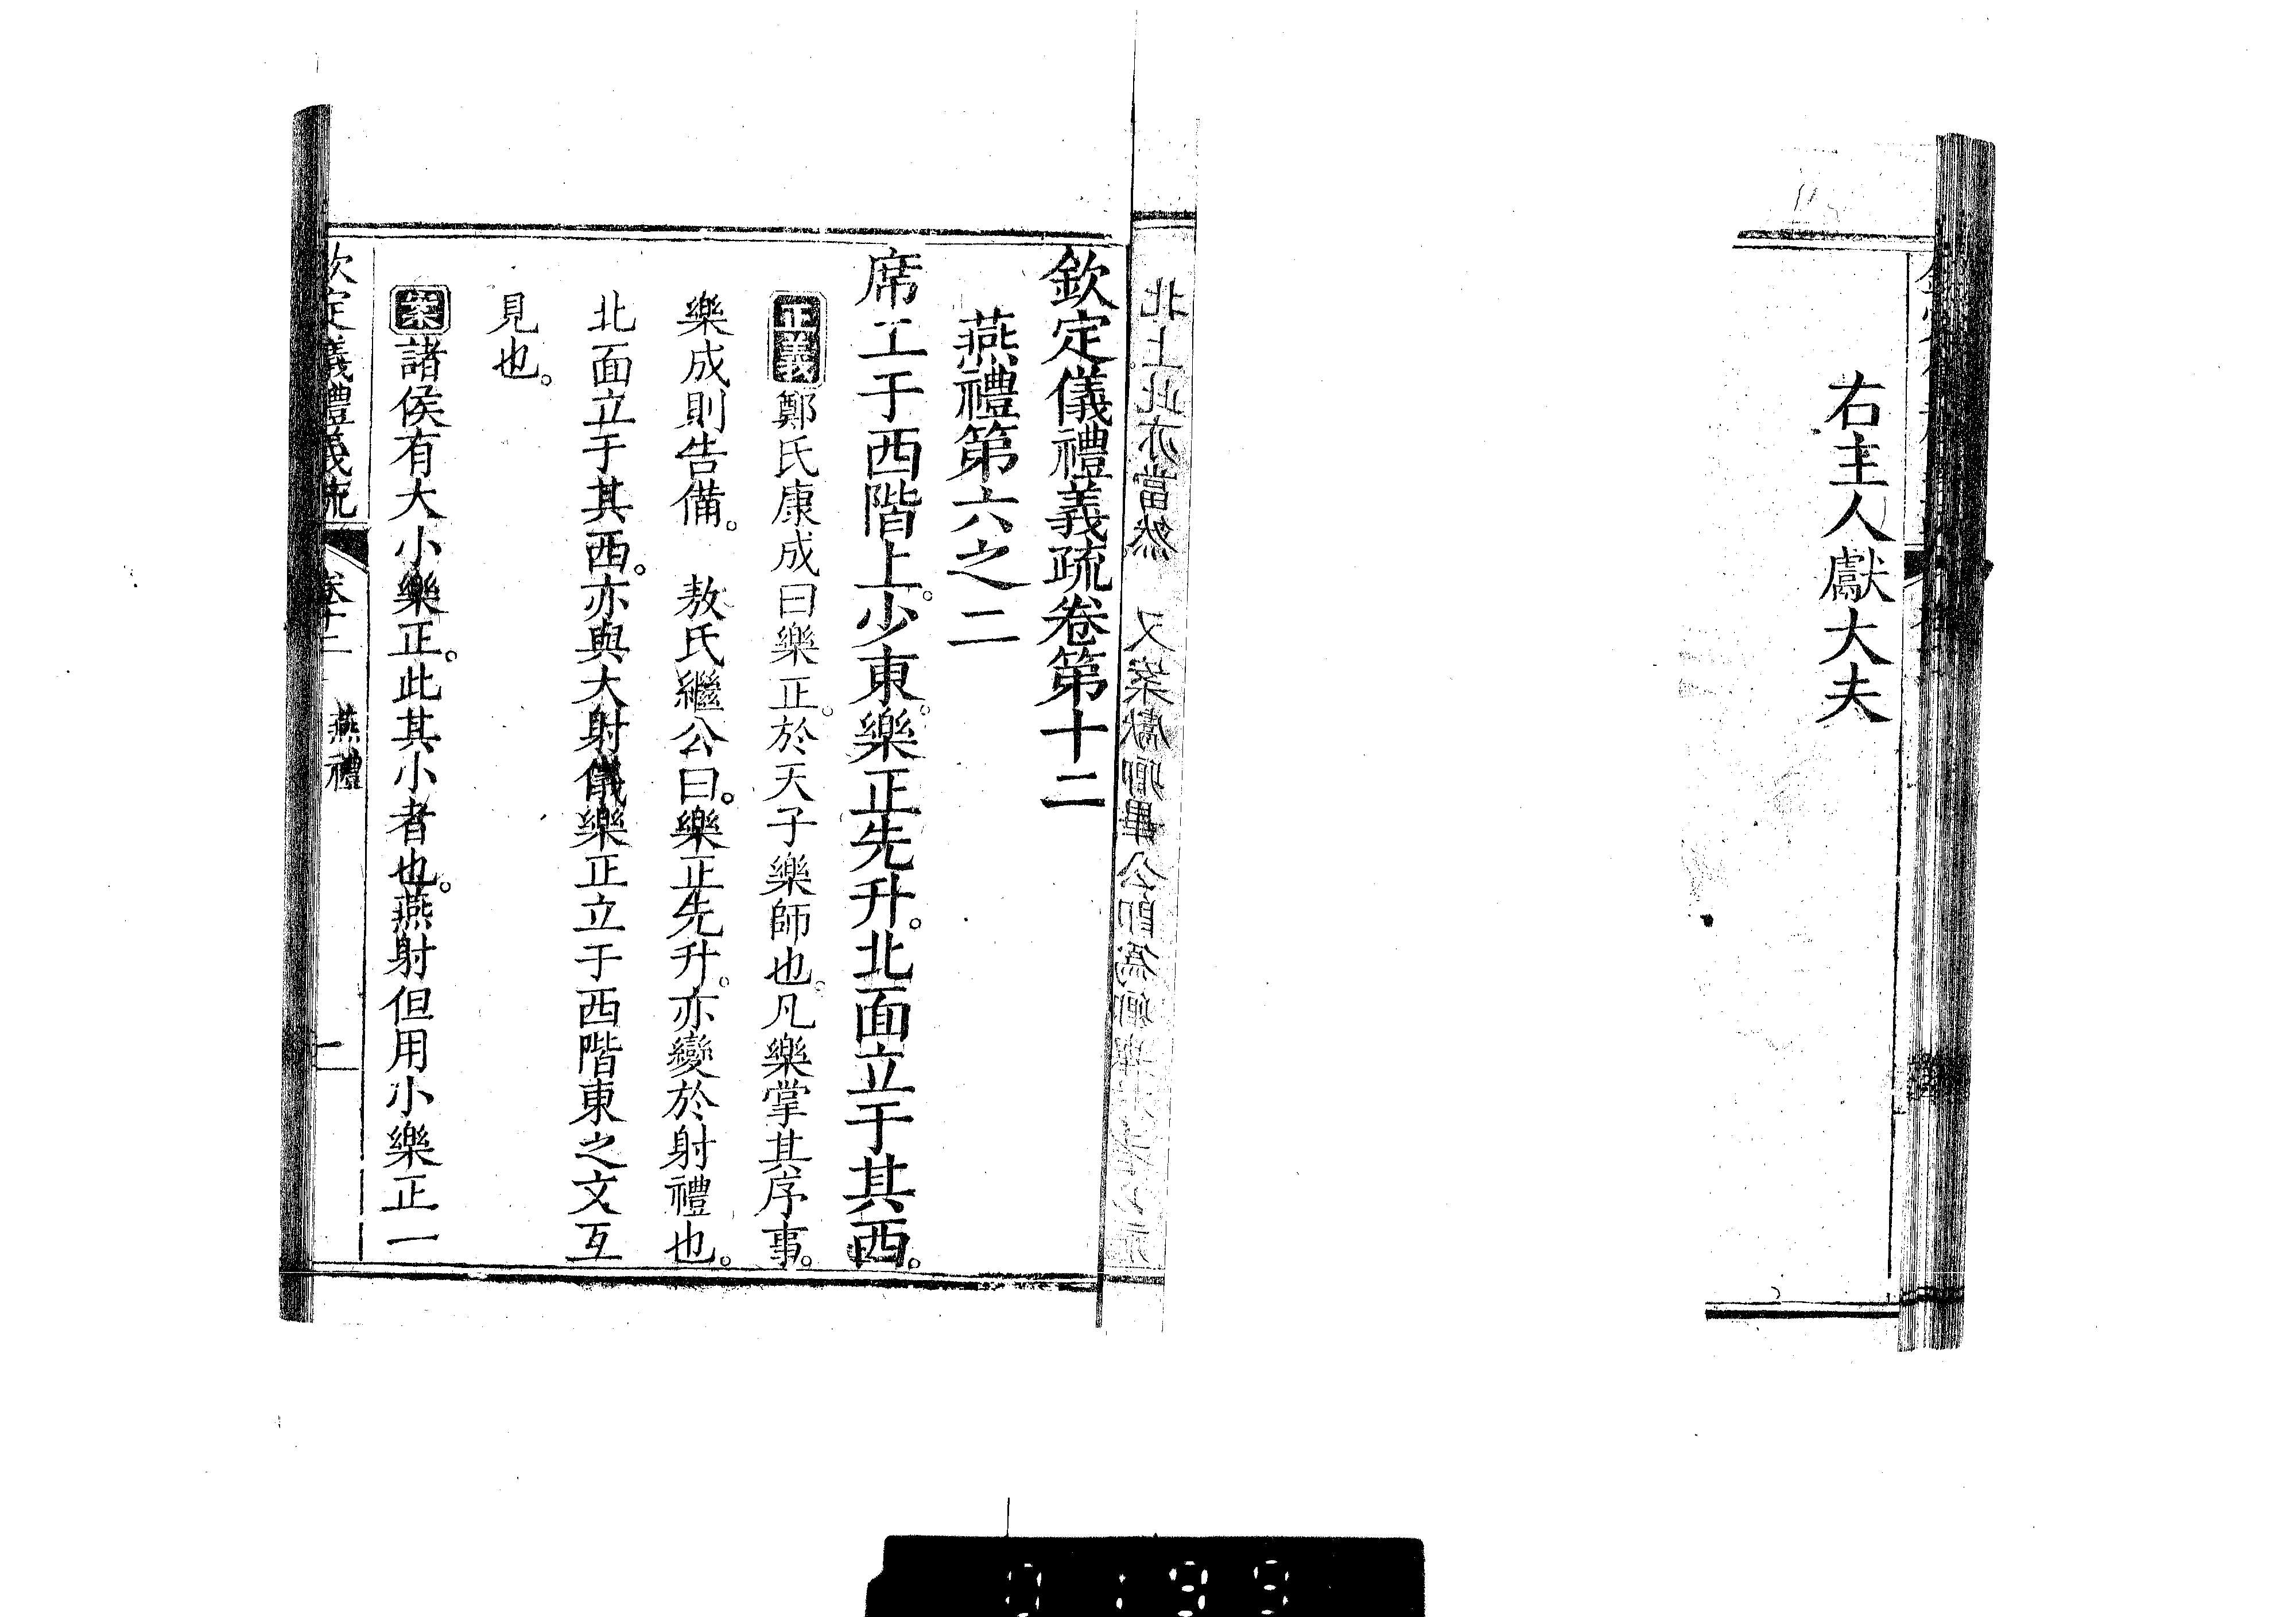 右主人獻大夫
欽定儀禮義疏卷第十二
燕禮第六之二
席工于西階上。少東。樂正先升。北面立于其西。
正義鄭氏康成曰樂正。於天子樂師也。凡樂掌其序事。
樂成則告備。 敖氏繼公曰。樂正先升。亦變於射禮也。
北面立于其西。亦與大射儀樂正立于西階東之文互
見也。
案諸侯有大小樂正。此其小者也。燕射但用小樂正一
欽定儀禮義疏 卷十二 燕禮 一